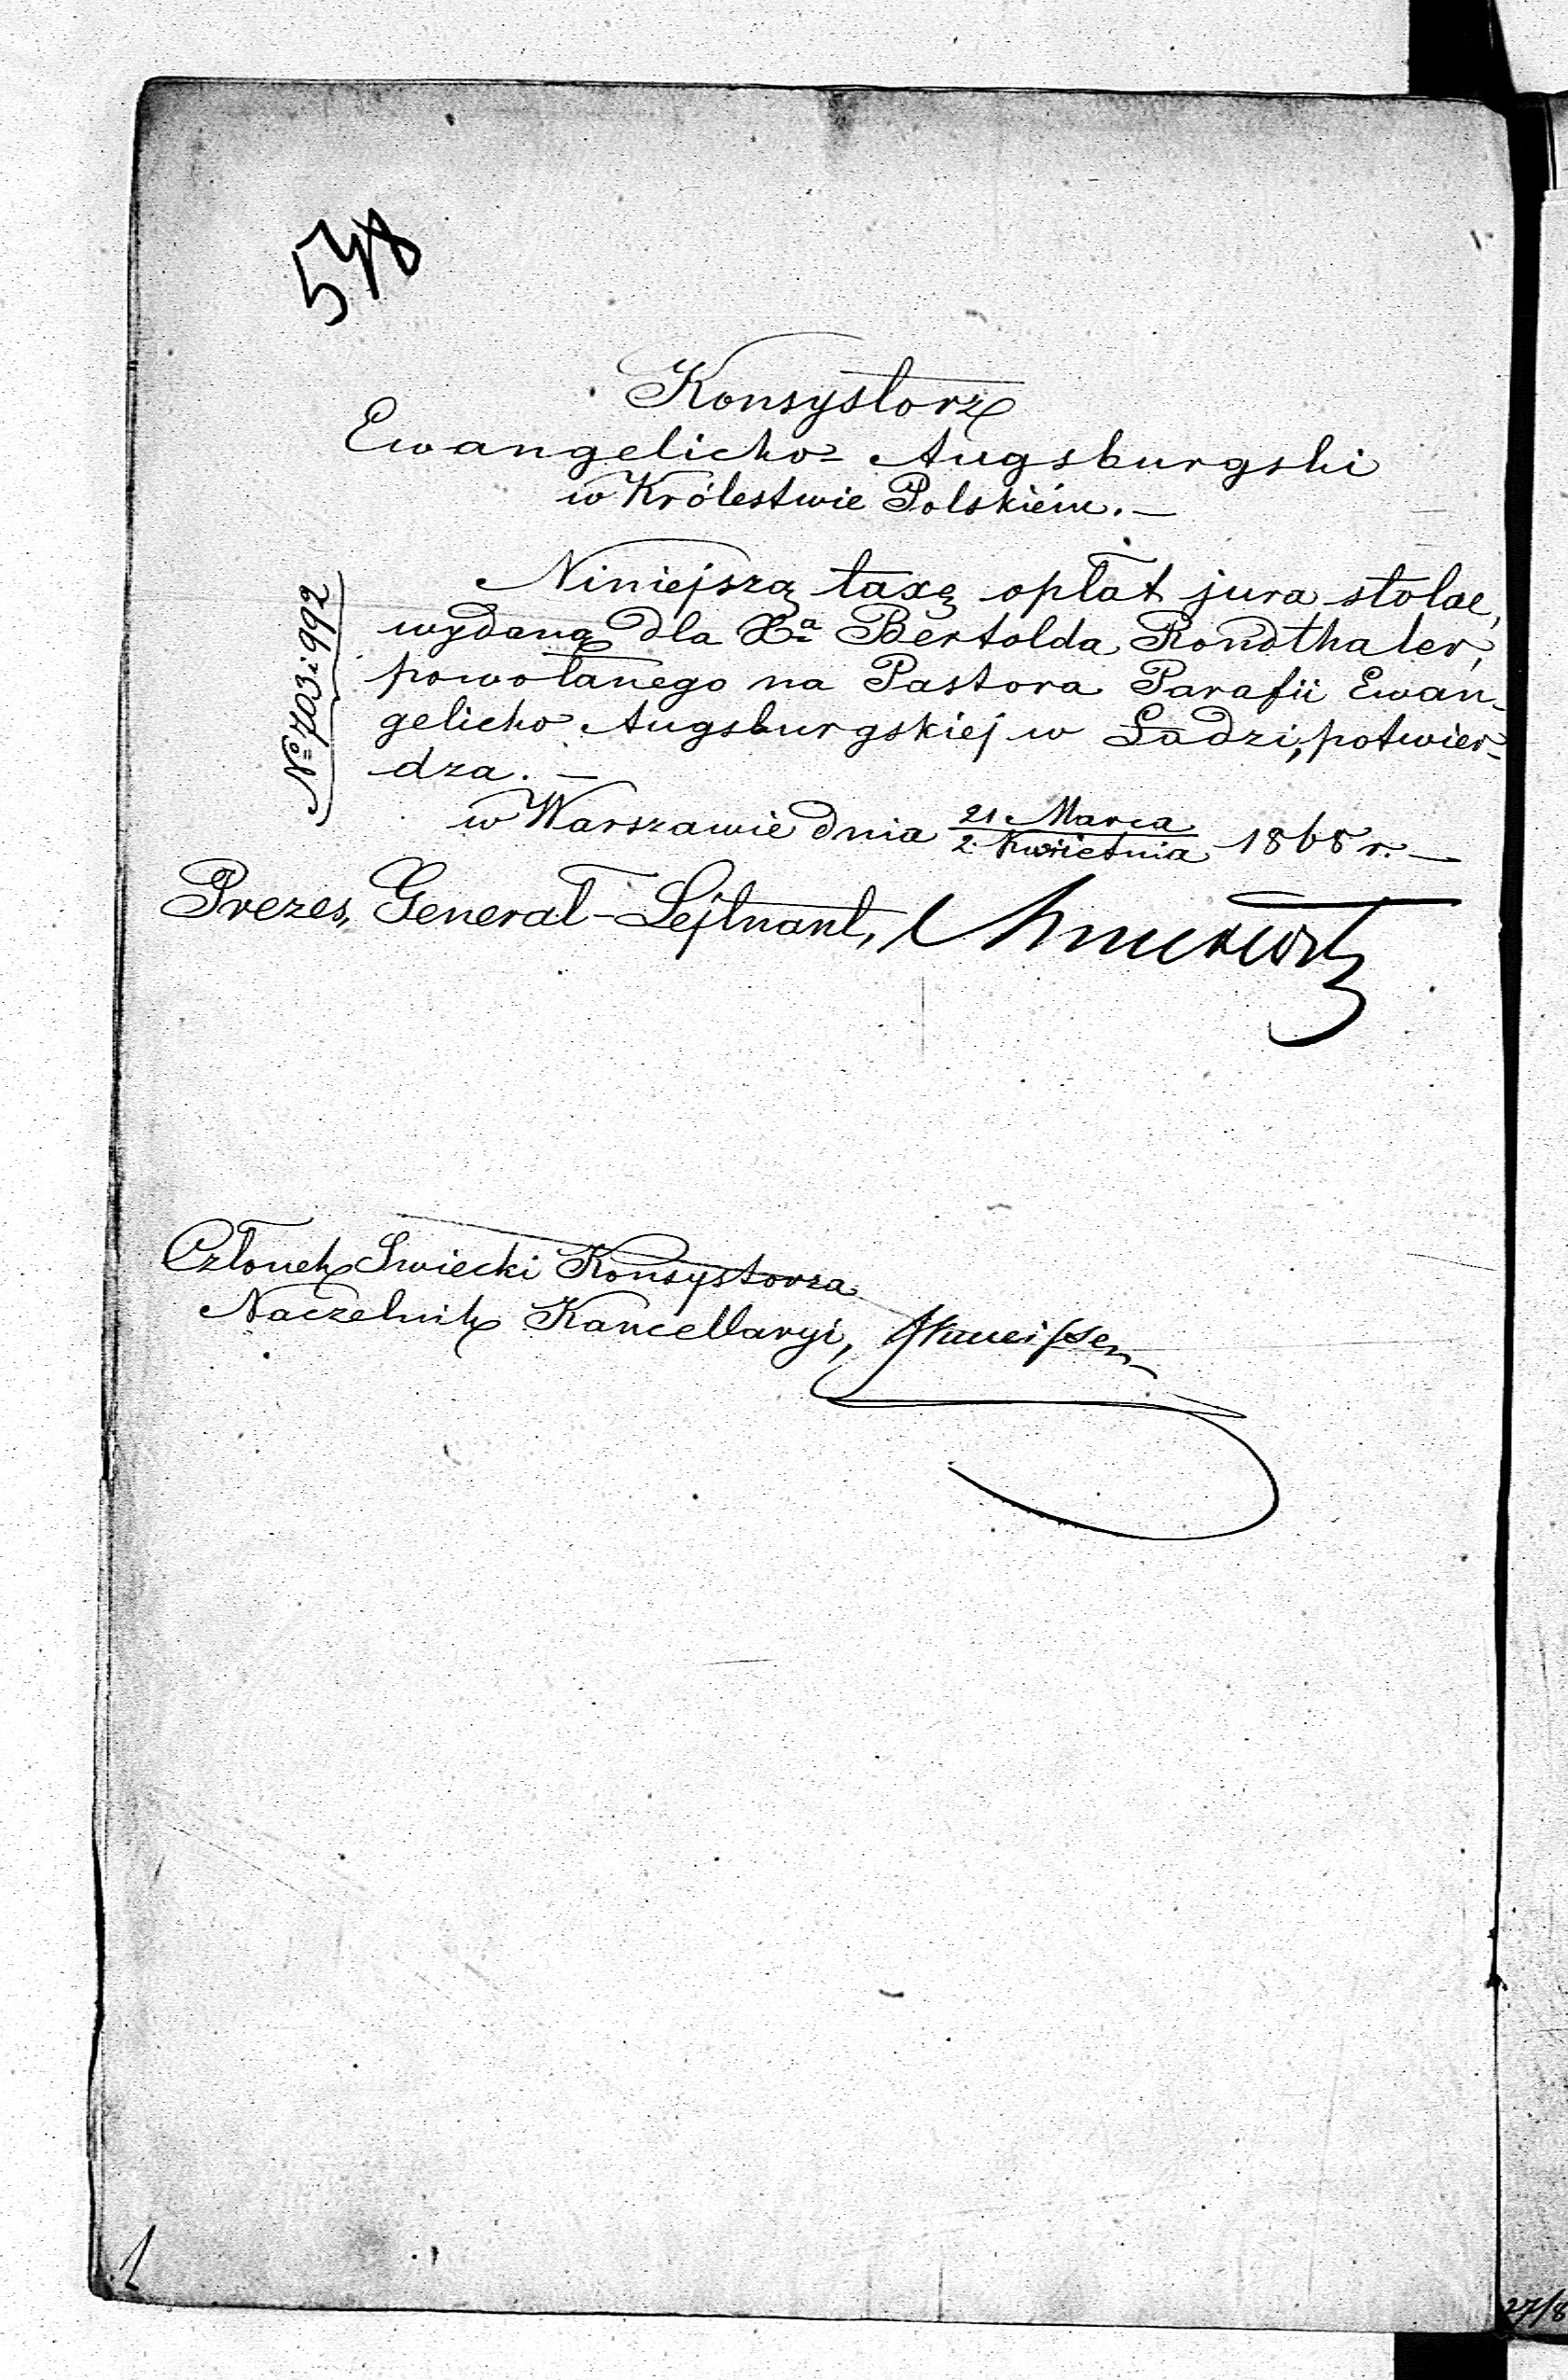 548
Konsystorz
Ewangelicko- Augsburgski
w Królestwie Polskiém. —
Niniejszą taxę opłat jura stolae,
wydaną dla Xa Bertolda Rondthaler,
powołanego na Pastora Parafii Ewan-
gelicko Augsburgskiej w Ładzi, potwier-
dza. —
№ 703 i 992
w Warszawie dnia 21 Marca / 2 Kwietnia 1868 r. —
Prezes, Generał-Lejtnant,
Członek Swiecki Konsystorza
Naczelnik Kancellaryi,
1
27/8